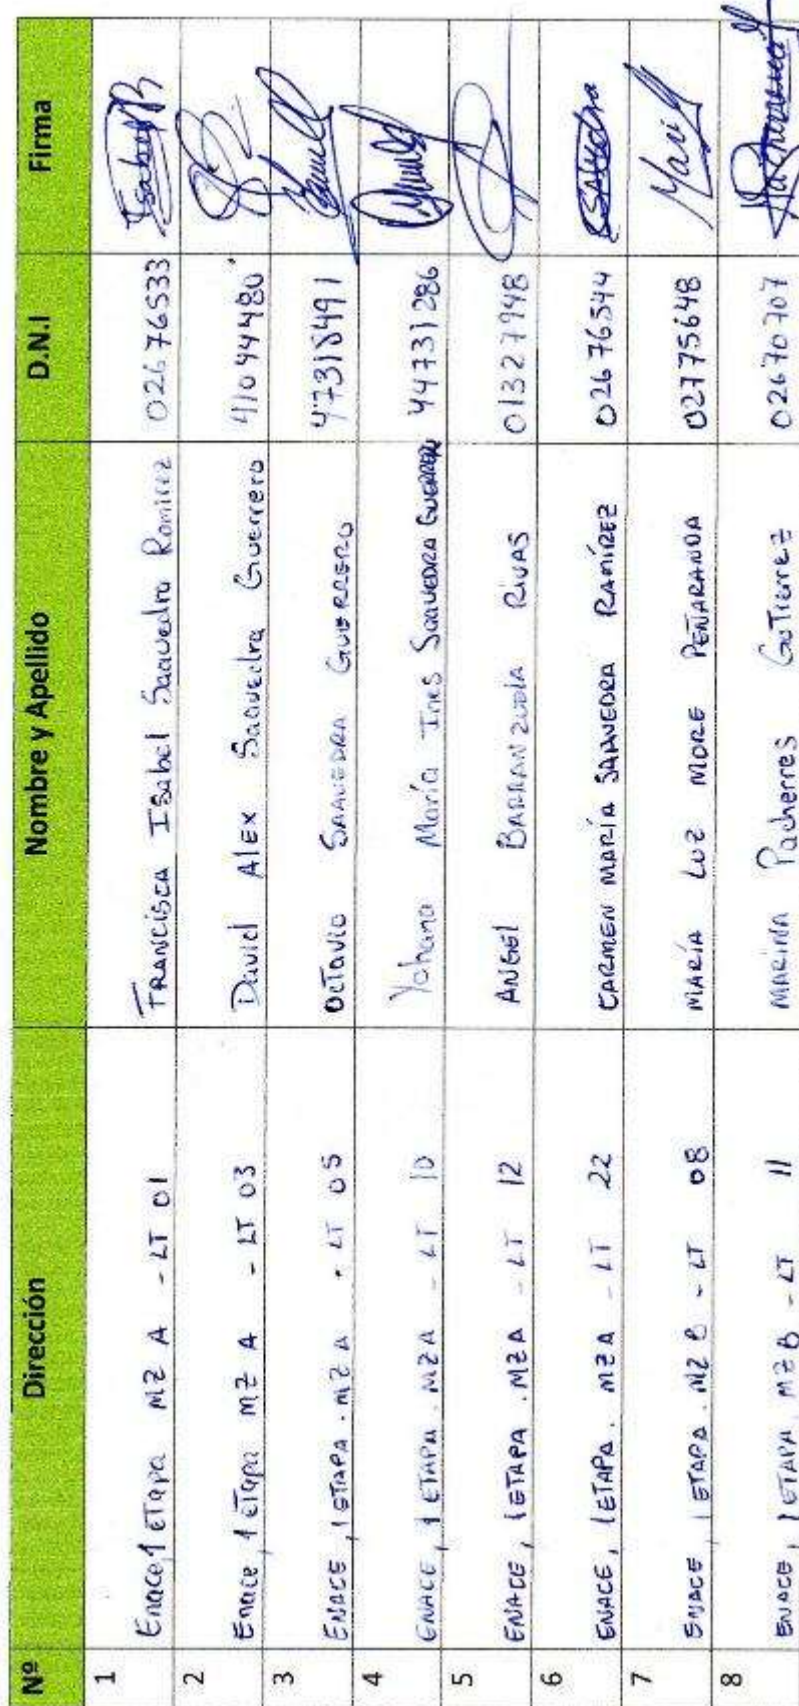 Nº Dirección Nombre y Apellido D.N.I Firma
1 Enace, 1 eTapa MZ A - LT 01 FRANCISCA ISabel Saavedra Ramirez 02676533 Isabel
2 Enace, 1 eTapa MZ A - LT 03 David AlEx Saavedra Guerrero 41094480
3 ENACE, 1 ETAPA. MZ A - LT 05 OCTavio SAAVEDRA GUERRERO 47318491
4 ENACE, 1 ETAPA. MZA - LT 10 Yohana María Ines SAAVEDRA GUERRERO 44731286
5 ENACE, 1ETAPA. MZA - LT 12 ANGEl BARRANZUELA RIVAS 01327948
6 ENACE, 1ETAPA. MZA - LT 22 CARMEN MARÍA SAAVEDRA RAMÍREZ 02676544 SAAvedra
7 ENACE 1 ETAPA. MZ B - LT 08 MARÍA LUZ MORE PEÑARANDA 02775648
8 ENACE, 1 ETAPA. MZ B - LT 11 MARINA Pacherres GuTierrez 02670707